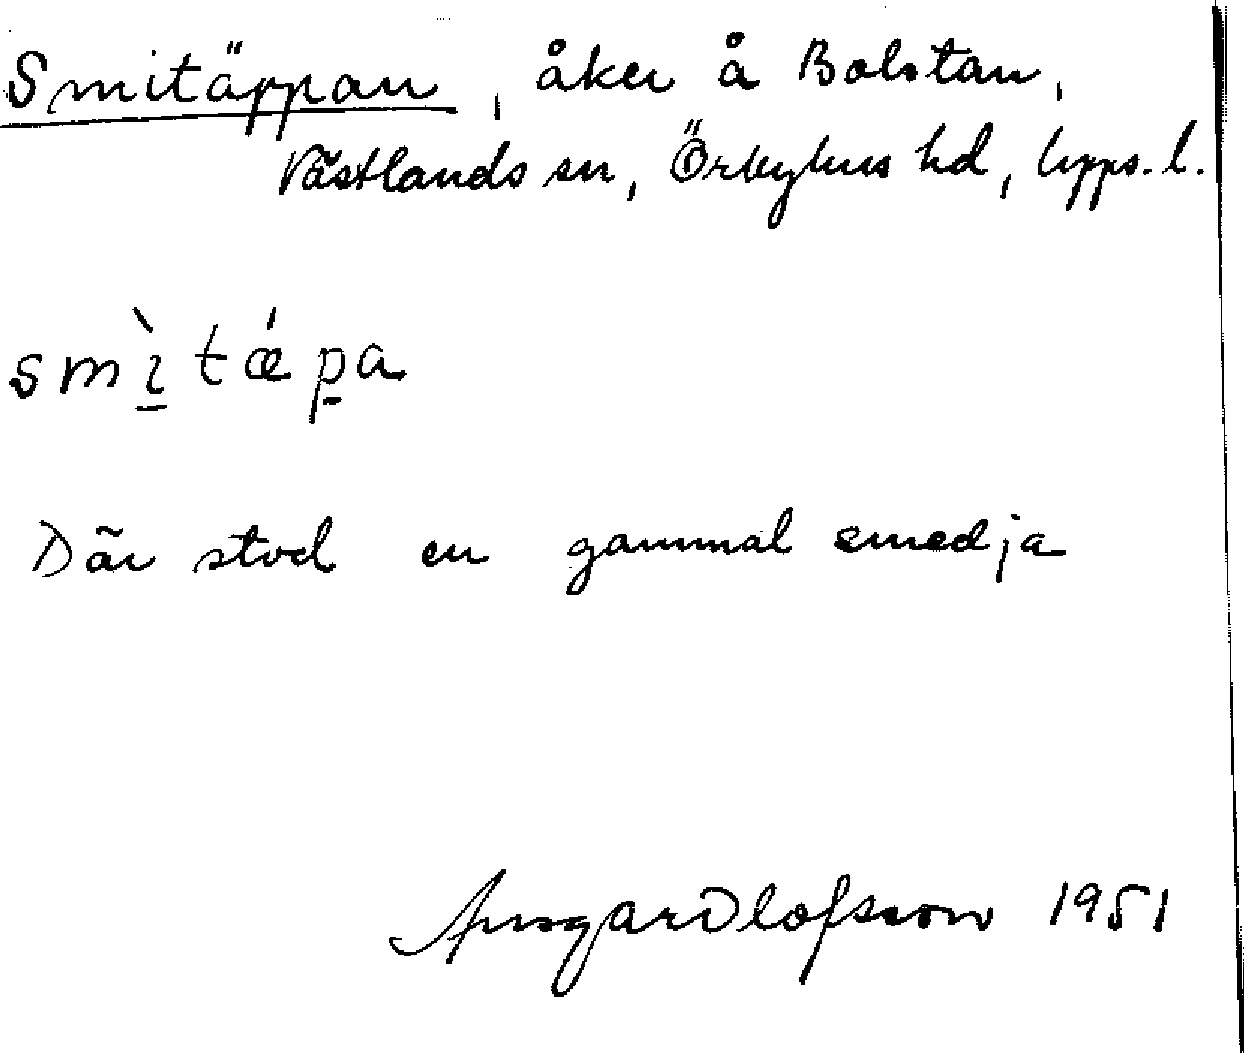 Smitäppan, åker å Bolstan,
Västlands sn, Örbyhus hd, Upps. l.
smìtǽpa
Där stod en gammal smedja
Ansgar Olofsson 1951